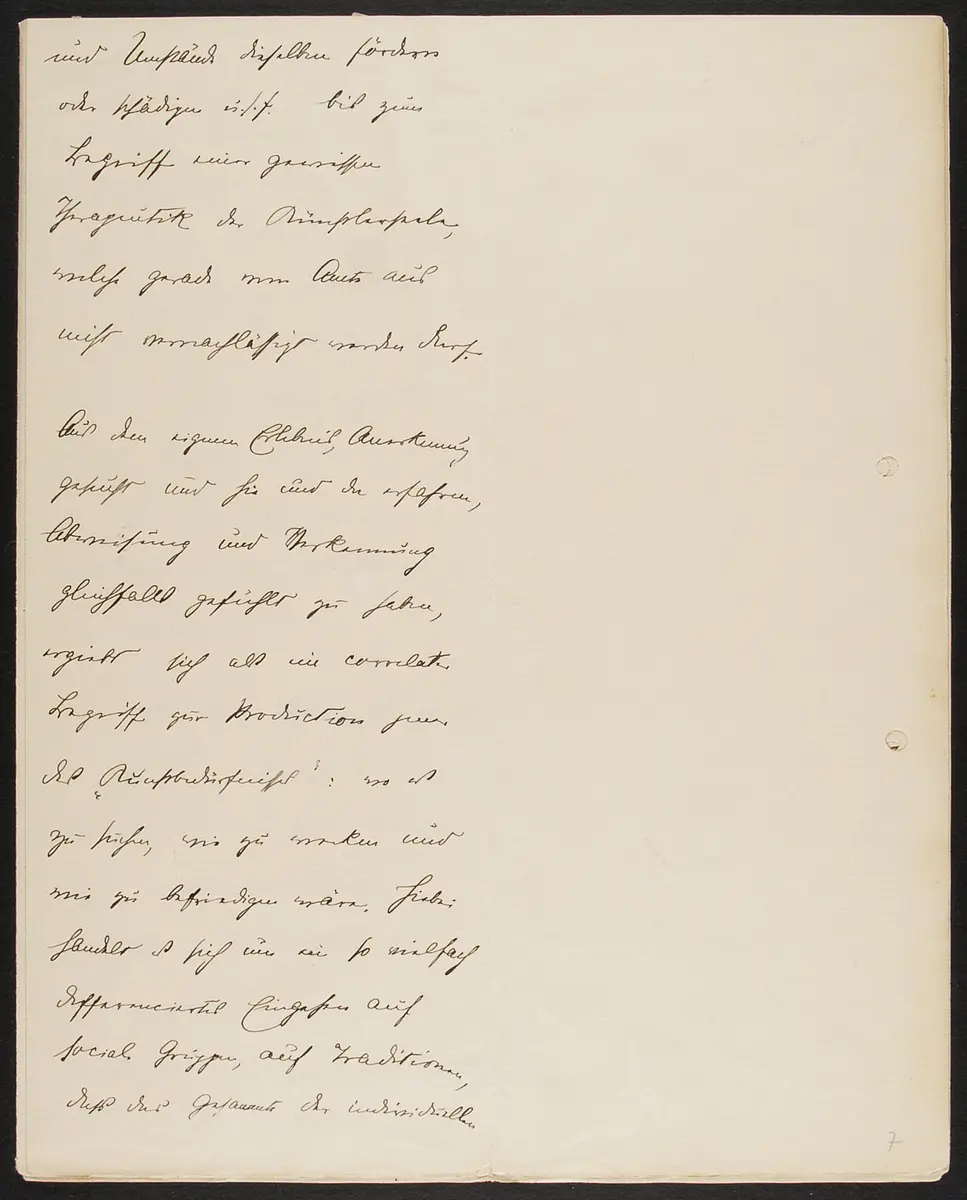 und Umstände dieselben fördern
oder schädigen u.s.f. bis zum
Begriff einer gewissen
Therapeutik der Künstlerseele,
welche gerade vom Amte aus
nicht vernachlässigt werden darf.
Aus dem eignen Erlebnis, Anerkennung
gesucht und hie und da erfahren,
Abweisung und Verkennung
gleichfalls gefühlt zu haben,
ergiebt sich als ein correlater
Begriff zur Production jener
des „Kunstbedürfnisses": wo es
zu suchen, wie zu wecken und
wie zu befriedigen wäre. Hiebei
handelt es sich um ein so vielfach
differenciertes Eingehen auf
sociale Gruppen, auf Traditionen,
dass das Gesammte der individuellen
7